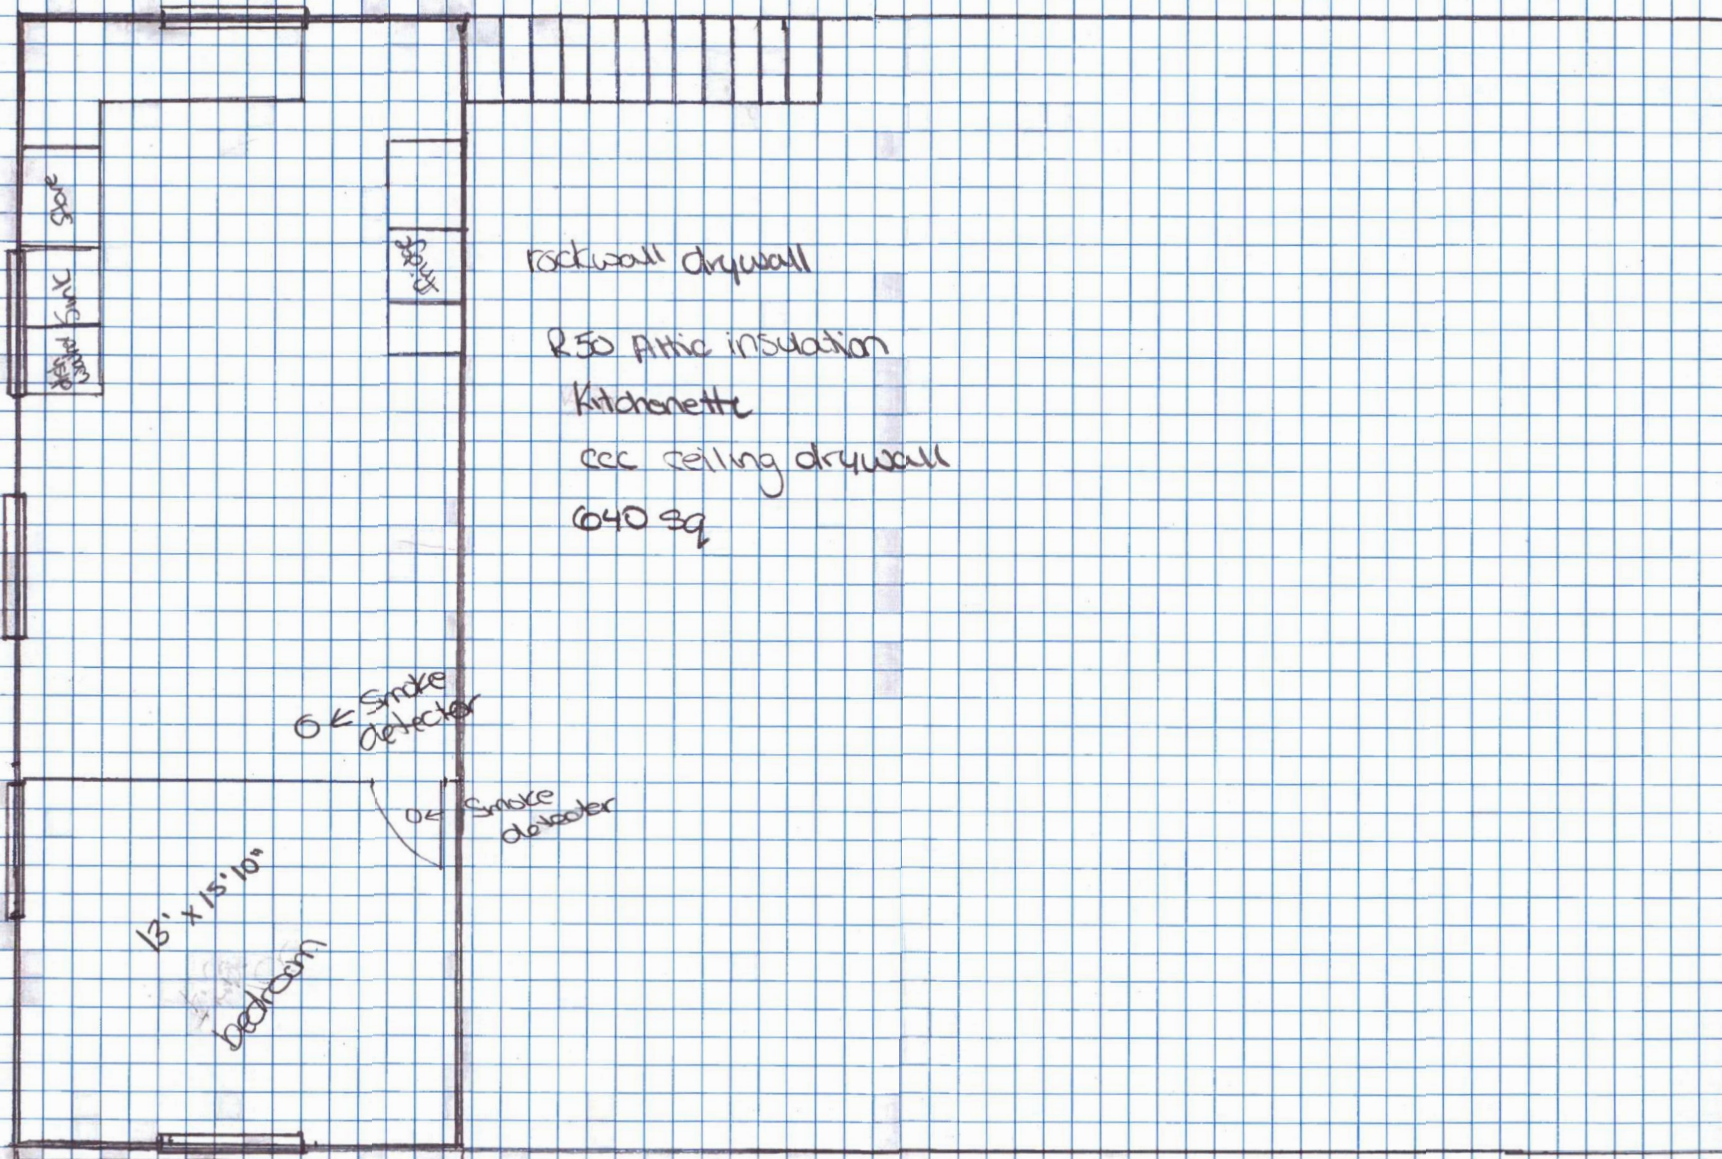 Stove
Sink
Fridge
rockwall drywall
R50 Attic insulation
Kitchenette
ccc ceiling drywall
640 sq
O ← Smoke
detector
O ← Smoke
detector
13' x 15' 10"
bedroom